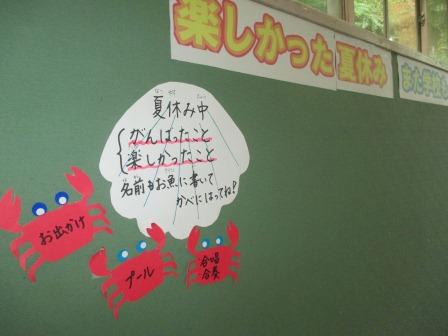 楽しかった夏休み
また学校
夏休み中
がんばったこと
楽しかったこと
名前もお魚に書いて
かべにはってね!
お出かけ
プール
合唱
合奏